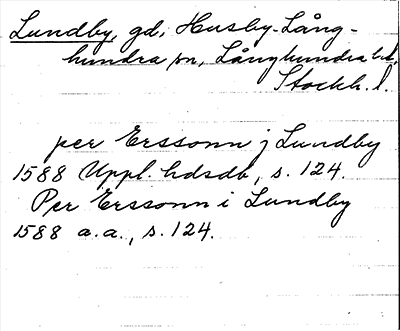 Lundby, gd, Husby-Lång-
hundra sn, Långhundra hd,
Stockh. l.
per Erssonn j Lundby
1588 Uppl. hdsdb, s. 124.
Per Erssonn i Lundby
1588 a.a., s. 124.